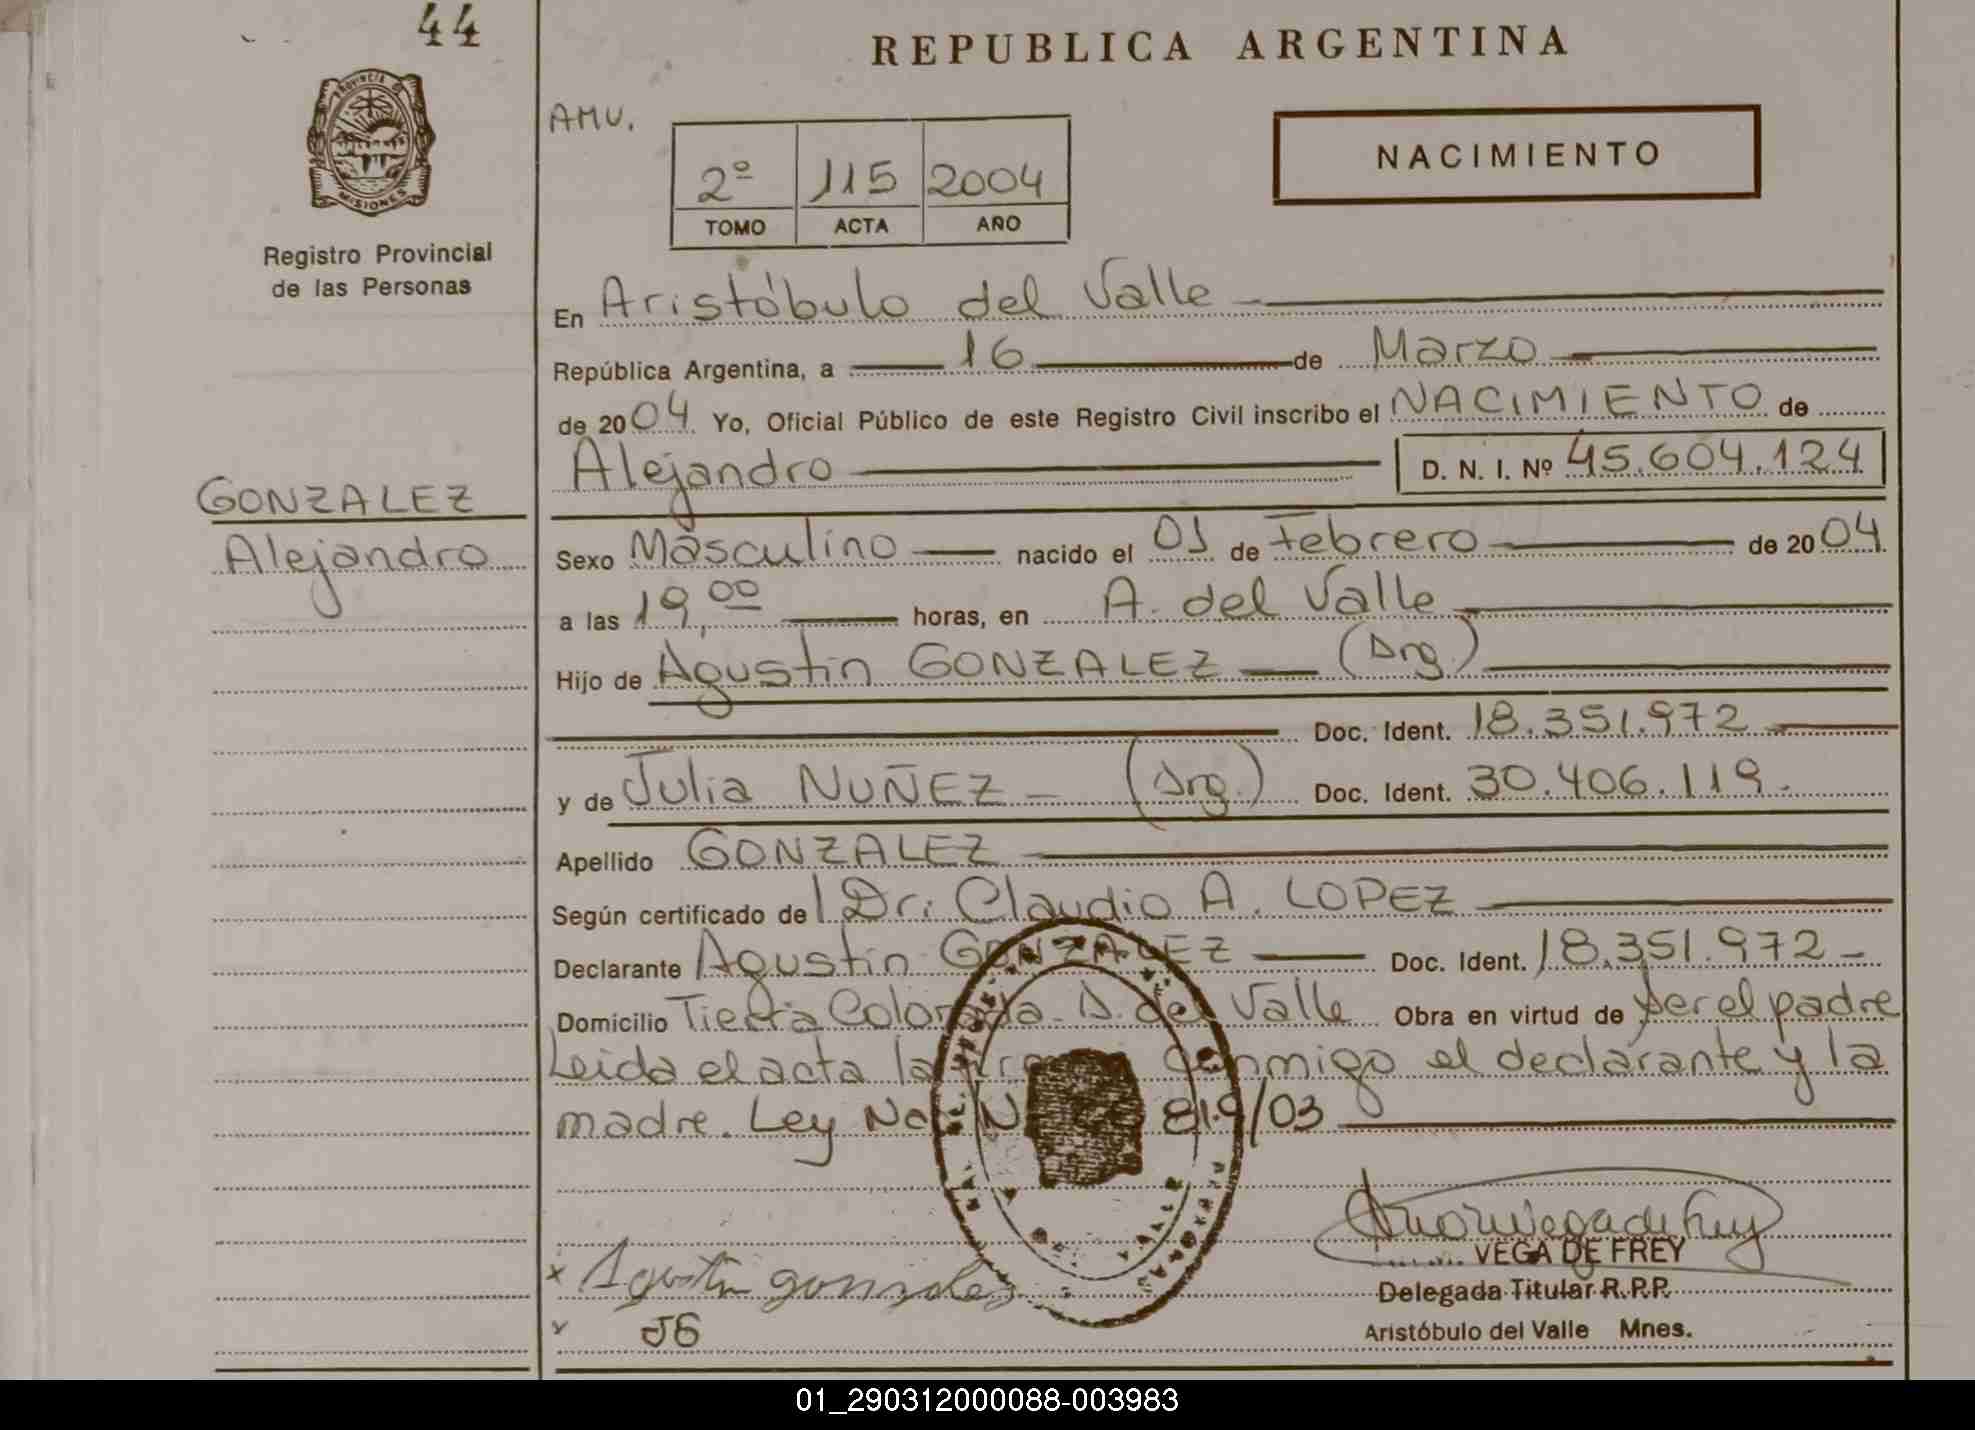 44
REPUBLICA ARGENTINA
PROVINCIA DE
MISIONES
Registro Provincial
de las Personas
AMU.
2º 115 2004
TOMO ACTA AÑO
NACIMIENTO
En Aristóbulo del Valle
República Argentina, a 16 de Marzo
de 2004 Yo, Oficial Público de este Registro Civil inscribo el NACIMIENTO de
Alejandro D. N. I. Nº 45.604.124
GONZALEZ
Alejandro
Sexo Masculino nacido el 01 de Febrero de 2004
a las 19,00 horas, en A. del Valle
Hijo de Agustin GONZALEZ (Arg.)
Doc. Ident. 18.351.972
y de Julia NUÑEZ - (Arg.) Doc. Ident. 30.406.119.
Apellido GONZALEZ
Según certificado de Dr. Claudio A. LOPEZ
Declarante Agustin GONZALEZ Doc. Ident. 18.351.972-
Domicilio Tierra Colorada - A. del Valle Obra en virtud de ser el padre
Leida el acta la conmigo el declarante y la
madre. Ley Nac. 819/03
x Agustin gonzalez
x JG
VEGA DE FREY
Delegada Titular R.P.P.
Aristóbulo del Valle Mnes.
01_290312000088-003983